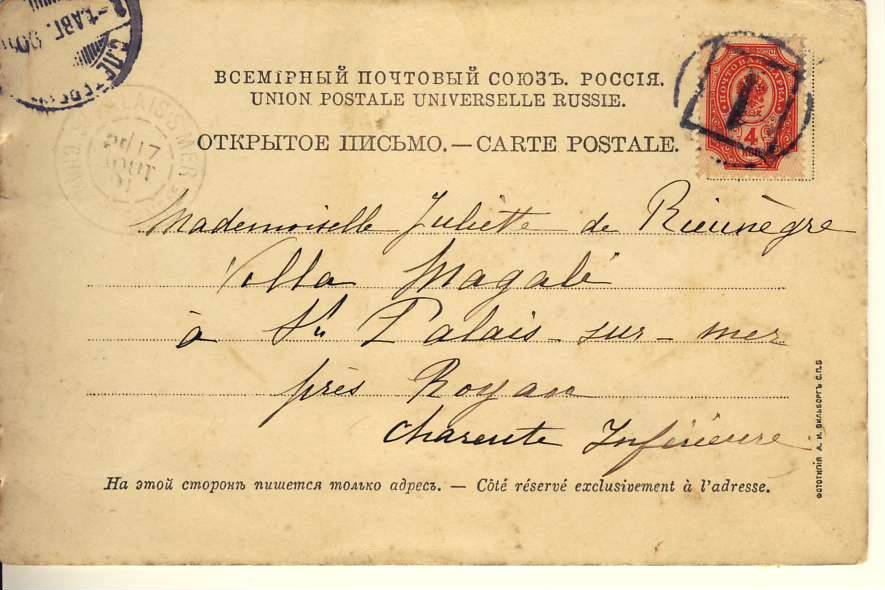 ВСЕМIРНЫЙ ПОЧТОВЫЙ СОЮЗЪ. РОССIЯ.
UNION POSTALE UNIVERSELLE RUSSIE.
ОТКРЫТОЕ ПИСЬМО.—CARTE POSTALE.
ПОЧТОВАЯ МАРКА
4
1
PALAIS S MER
17
AOUT
01
Mademoiselle Juliette de
Villa Magali
à St Palais-sur-mer
près Royan
Charente Inférieure
На этой сторонѣ пишется только адресъ. — Côté réservé exclusivement à l'adresse.
ФОТОТИПIЯ А. И. ВИЛЬБОРГЪ С.П.Б